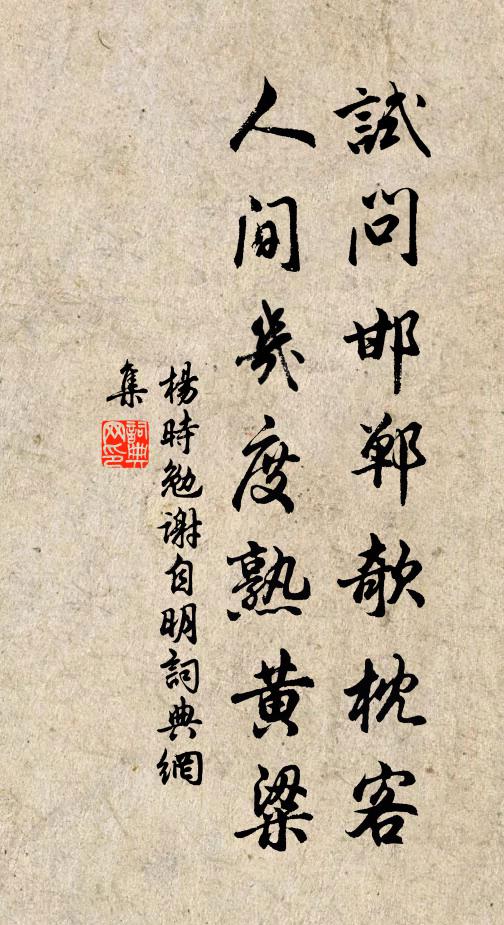 試問邯鄲欹枕客
人間幾度熟黃粱
楊時勉謝自明詞典網
集
詞典
网印